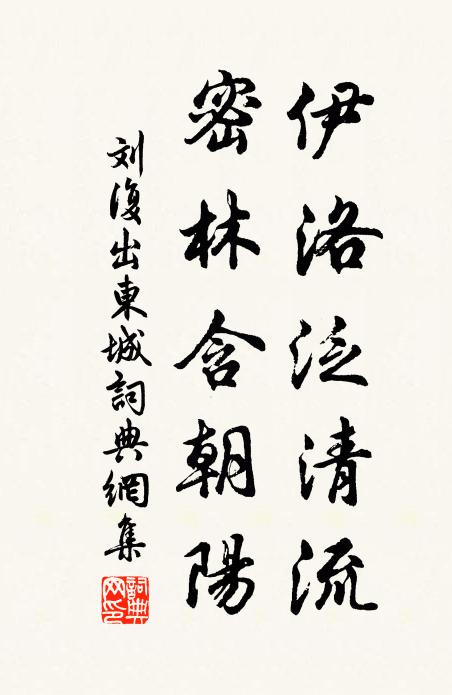 伊洛泛清流
密林含朝陽
刘復出東城詞典網集
詞典網印